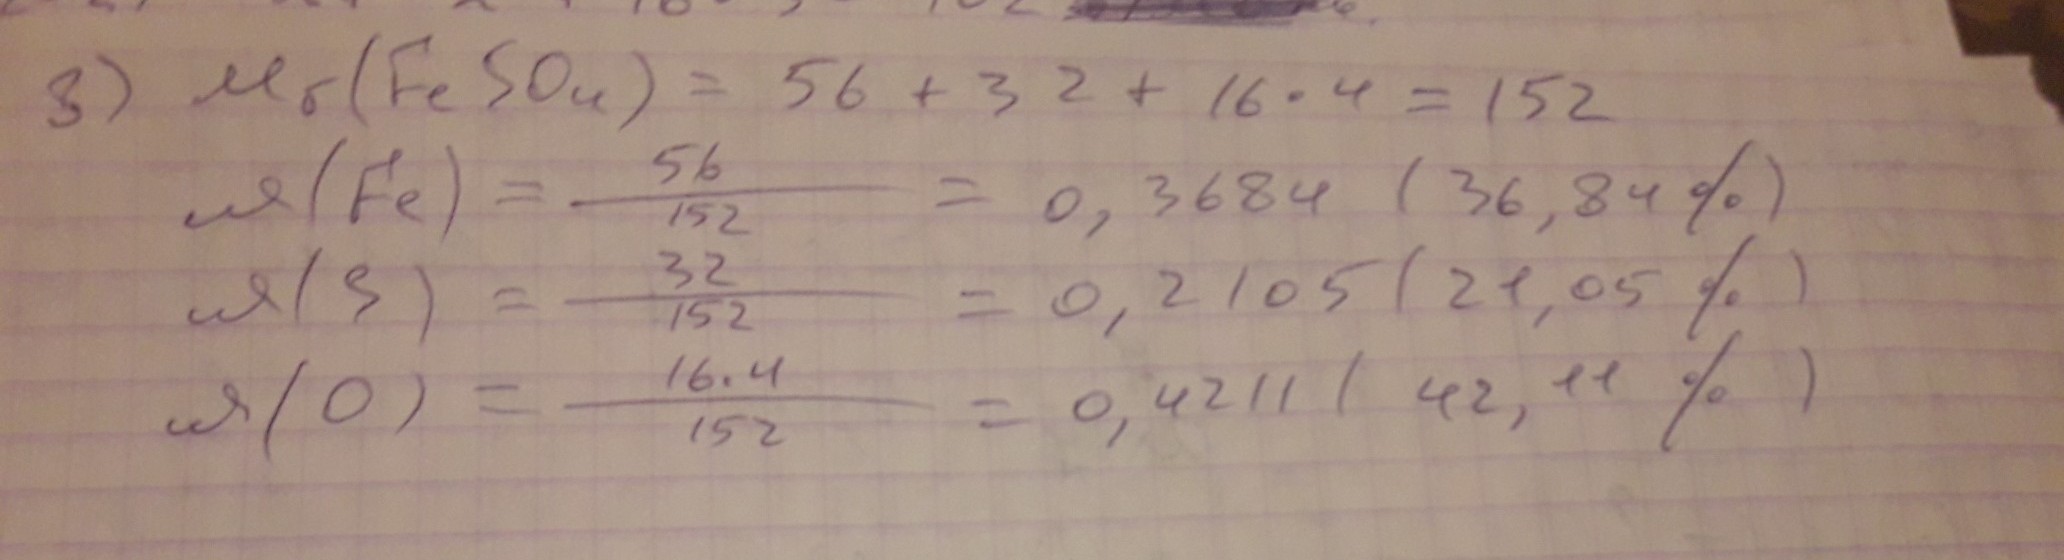 3) Mr(FeSO4) = 56 + 32 + 16 · 4 = 152
w(Fe) = 56/152 = 0,3684 (36,84%)
w(S) = 32/152 = 0,2105 (21,05%)
w(O) = 16·4/152 = 0,4211 (42,11%)